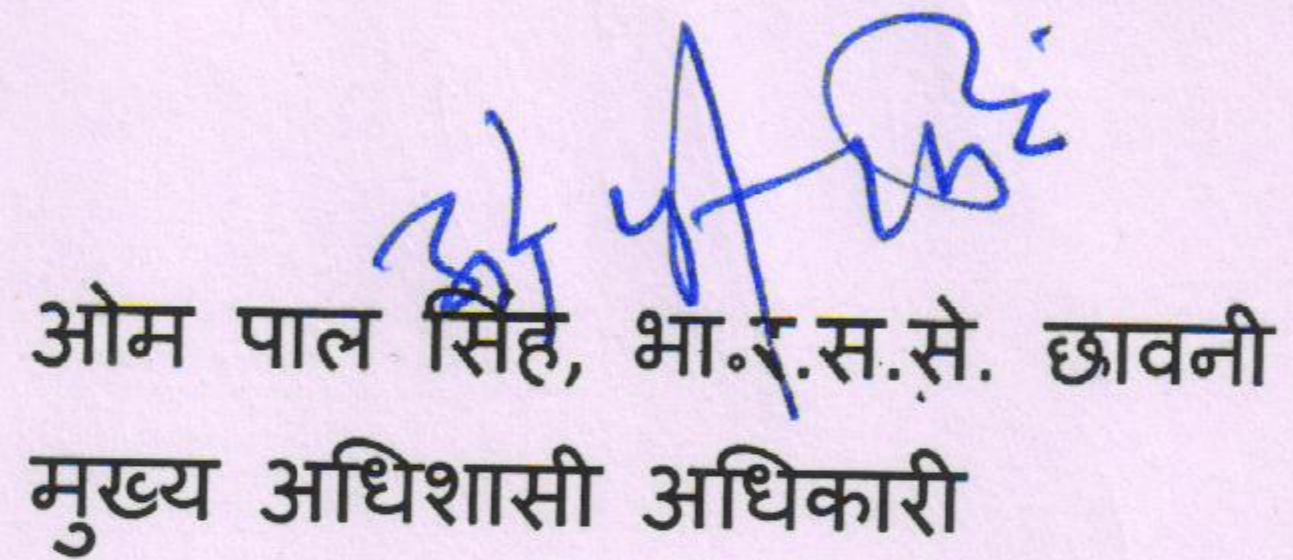 ओम पाल सिंह, भा.र.स.से. छावनी
मुख्य अधिशासी अधिकारी